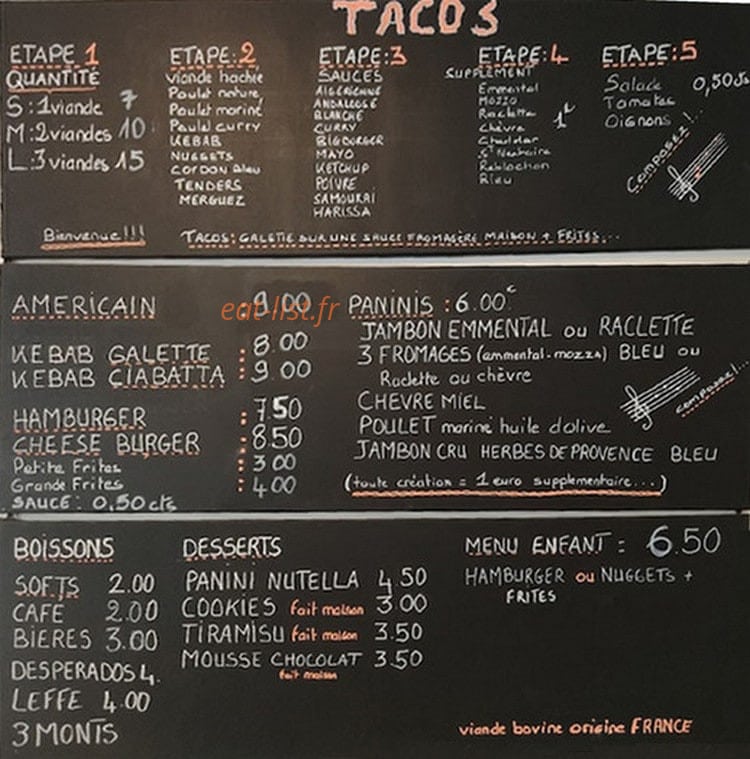 TACOS
ETAPE 1
QUANTITÉ
S : 1 viande 7
M : 2 viandes 10
L : 3 viandes 15
ETAPE : 2
viande hachée
Poulet nature
Poulet mariné
Poulet curry
KEBAB
NUGGETS
CORDON Bleu
TENDERS
MERGUEZ
ETAPE : 3
SAUCES
ALGERIENNE
ANDALOUSE
BLANCHE
CURRY
BIG BURGER
MAYO
KETCHUP
POIVRE
SAMOURAI
HARISSA
ETAPE : 4
SUPPLEMENT
Emmental
Mozza
Raclette
Chèvre 1€
Cheddar
St Nectaire
Reblochon
Bleu
ETAPE : 5
Salade 0,50
Tomates
Oignons
Composez !...
Bienvenue !!!
TACOS : GALETTE SUR UNE SAUCE FROMAGÈRE MAISON + FRITES...
AMERICAIN 9.00
eat-list.fr
KEBAB GALETTE : 8.00
KEBAB CIABATTA : 9.00
HAMBURGER : 7.50
CHEESE BURGER : 8.50
Petite Frites : 3 00
Grande Frites : 4.00
SAUCE : 0,50 cts
PANINIS : 6.00€
JAMBON EMMENTAL ou RACLETTE
3 FROMAGES (emmental-mozza) BLEU ou
Raclette ou chèvre
CHEVRE MIEL
POULET mariné huile d'olive
JAMBON CRU HERBES DE PROVENCE BLEU
composez !...
(toute création = 1 euro supplementaire...)
BOISSONS
SOFTS 2.00
CAFE 2.00
BIERES 3.00
DESPERADOS 4.
LEFFE 4.00
3 MONTS
DESSERTS
PANINI NUTELLA 4.50
COOKIES fait maison 3.00
TIRAMISU fait maison 3.50
MOUSSE CHOCOLAT 3.50
fait maison
MENU ENFANT : 6.50
HAMBURGER ou NUGGETS +
FRITES
viande bovine origine FRANCE